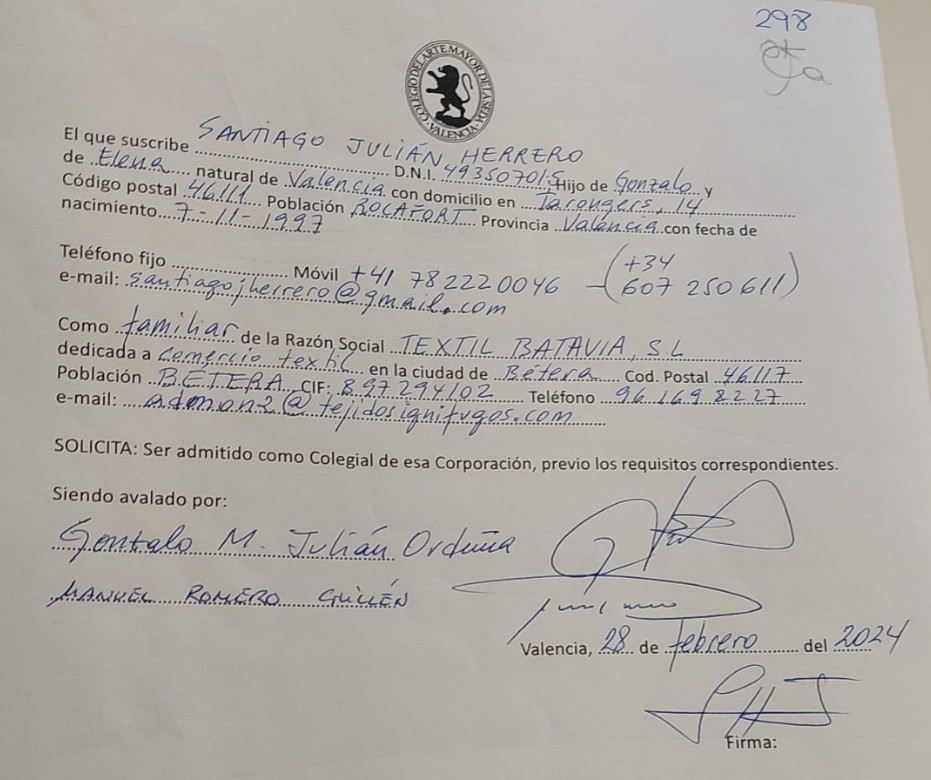 298
COLEGIO DEL ARTE MAYOR DE LA SEDA · VALENCIA ·
El que suscribe SANTIAGO JULIÁN HERRERO
de Elena natural de Valencia D.N.I. 49350701S Hijo de Gonzalo y
Código postal 46111 Población ROCAFORT con domicilio en Tarongers, 14
nacimiento 7-11-1997 Provincia Valencia con fecha de
Teléfono fijo Móvil +41 78 222 00 46 - (+34 607 250 611)
e-mail: santiagojherrero@gmail.com
Como familiar de la Razón Social TEXTIL BATAVIA, SL
dedicada a comercio textil en la ciudad de Bétera Cod. Postal 46117
Población BÉTERA CIF: B97294102 Teléfono 96 169 82 27
e-mail: admon2@tejidosignifugos.com
SOLICITA: Ser admitido como Colegial de esa Corporación, previo los requisitos correspondientes.
Siendo avalado por:
Gonzalo M. Julián Orduña
MANUEL ROMERO GUILLÉN
Valencia, 28 de febrero del 2024
Firma: